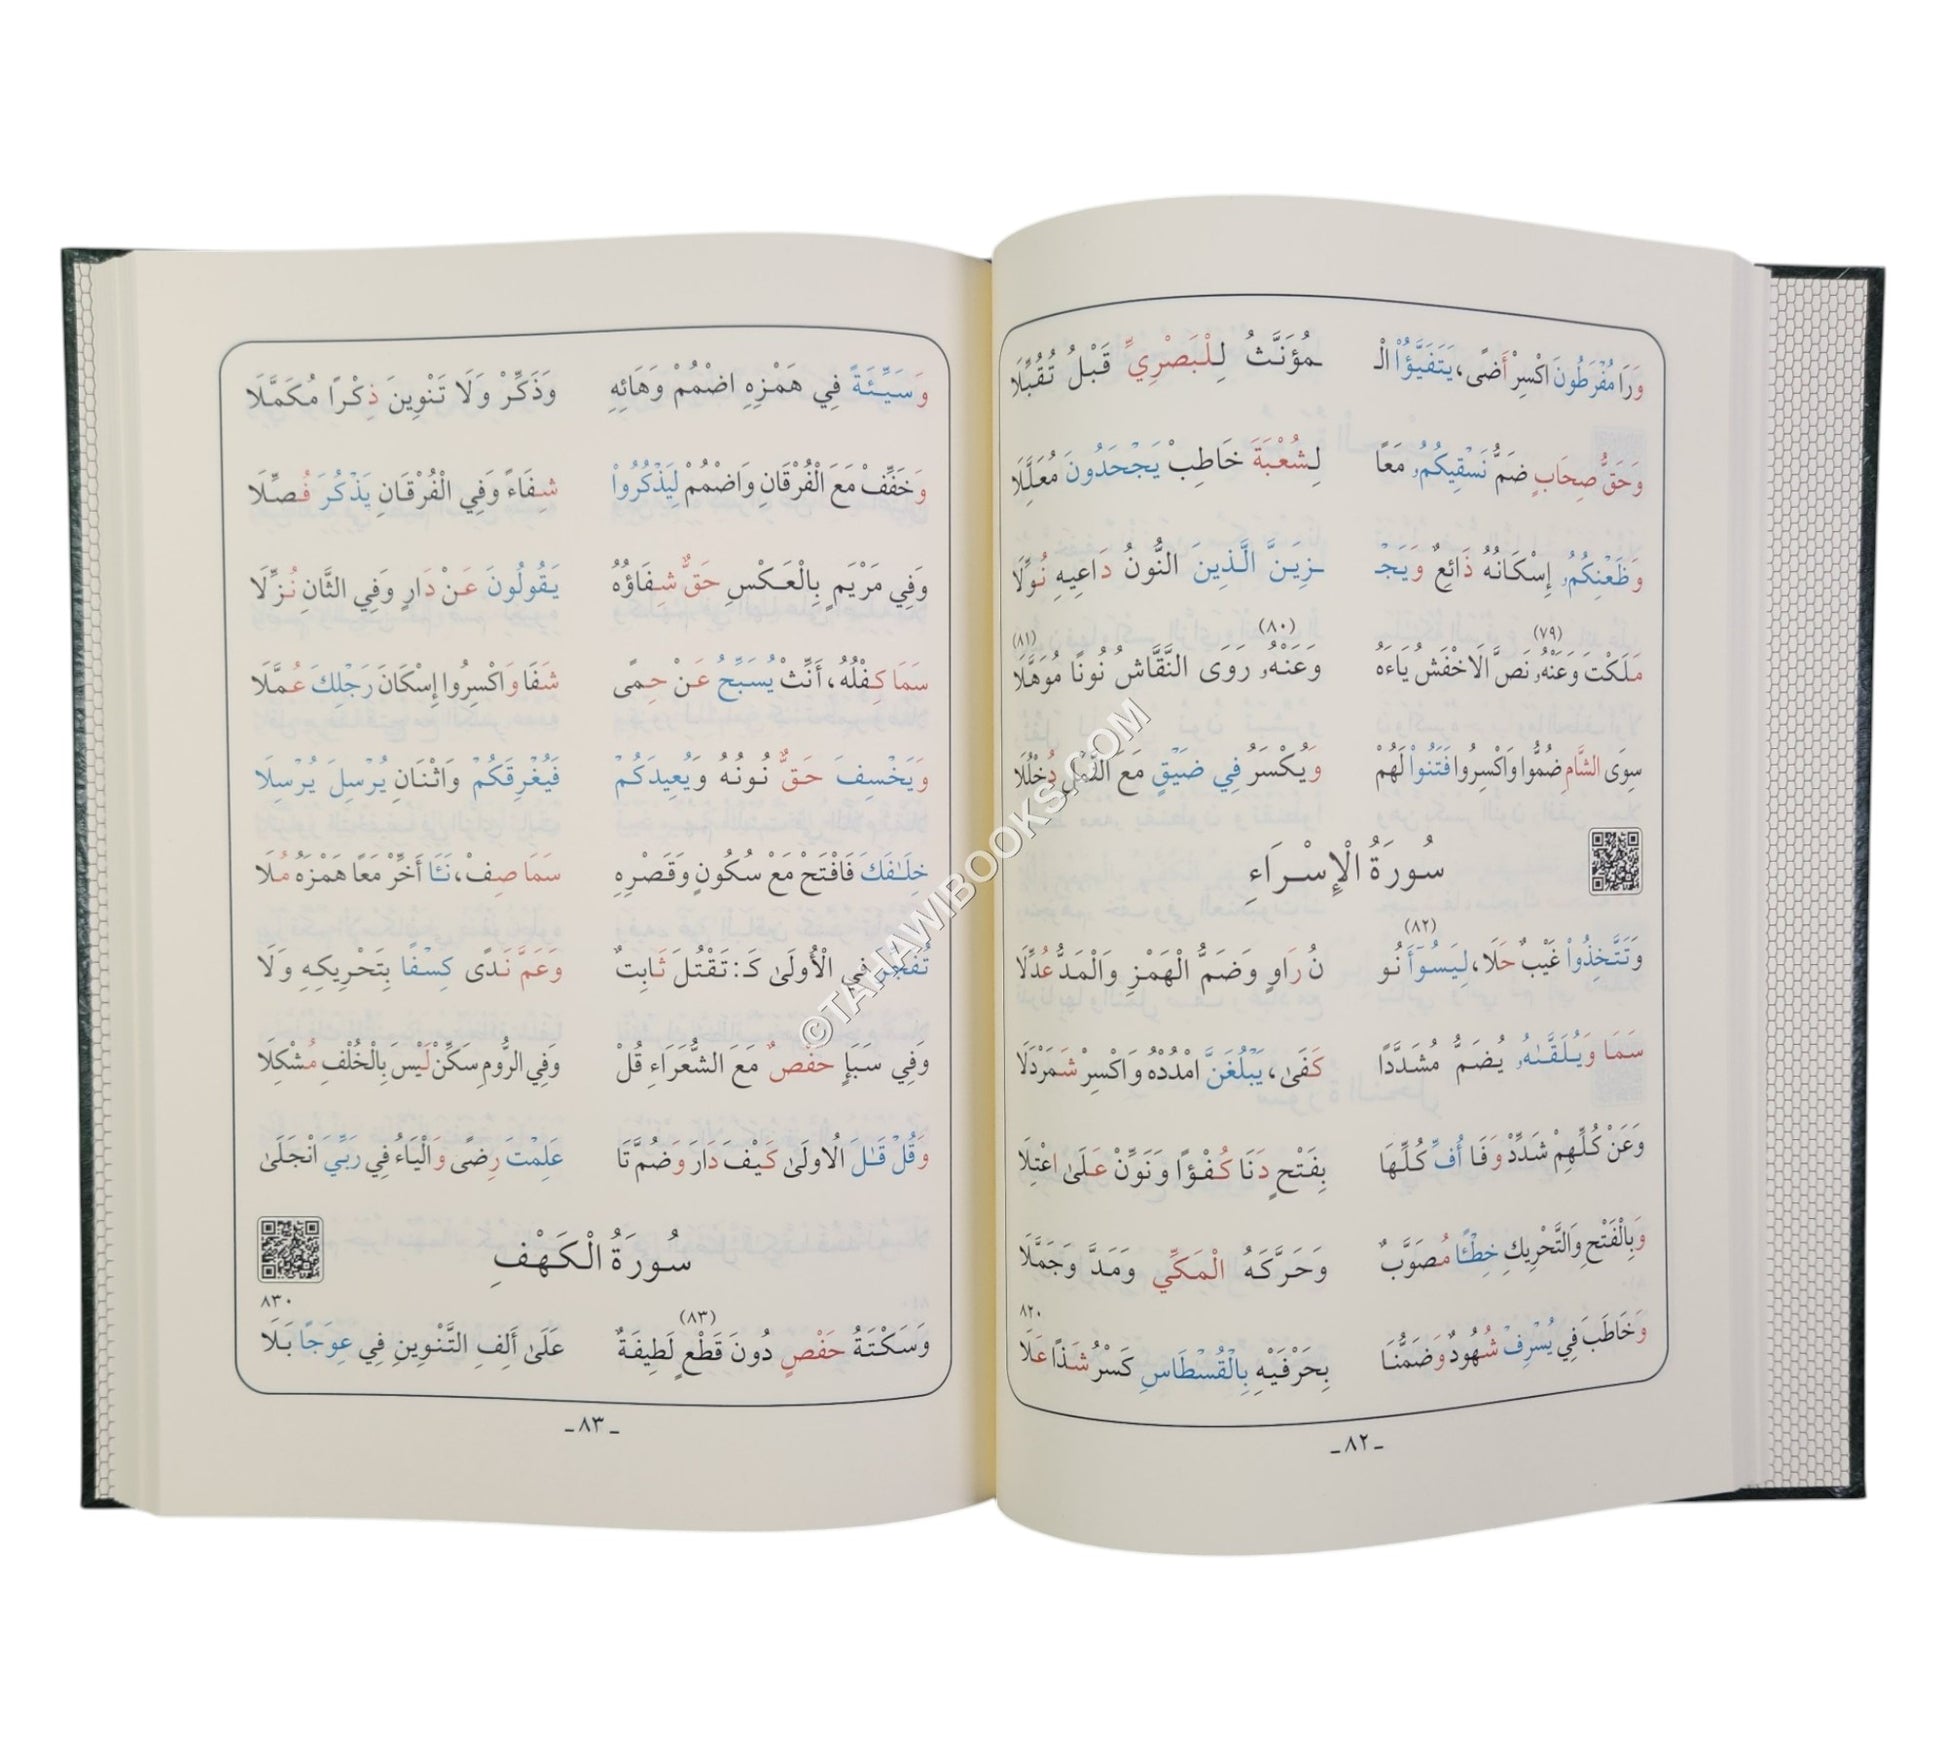 وَرَا مُفْرَطُونَ اكْسِرْ أَضًى، يَتَفَيَّؤُا الْـ ـمُؤَنَّثُ لِلْبَصْرِيِّ قَبْلُ تُقُبِّلَا
وَحَقُّ صِحَابٍ ضَمُّ نَسْقِيكُمُۥ مَعًا لِشُعْبَةَ خَاطِبْ يَجْحَدُونَ مُعَلَّلَا
وَظَعْنِكُمُۥ إِسْكَانُهُ ذَائِعٌ وَيَجْـ ـزِيَنَّ الَّذِينَ النُّونُ دَاعِيهِ نُوِّلَا
(٧٩) (٨٠) (٨١)
مَلَكْتَ وَعَنْهُۥ نَصَّ الَاخْفَشُ يَاءَهُ وَعَنْهُۥ رَوَى النَّقَّاشُ نُونًا مُوَهَّلَا
سِوَى الشَّامِ ضُمُّوا وَاكْسِرُوا فَتَنُوا لَهُمْ وَيُكْسَرُ فِي ضَيْقٍ مَعَ النَّمْلِ دُخْلُلَا
سُورَةُ الْإِسْرَاءِ
(٨٢)
وَتَتَّخِذُوا غَيْبٌ حَلَا، لِيَسُوٓأَ نُو نُ رَاوٍ وَضَمُّ الْهَمْزِ وَالْمَدُّ عُدِّلَا
سَمَا وَيُلَقَّىٰهُۥ يُضَمُّ مُشَدَّدًا كَفَىٰ، يَبْلُغَنَّ امْدُدْهُ وَاكْسِرْ شَمَرْدَلَا
وَعَنْ كُلِّهِمْ شَدِّدْ وَفَا أُفِّ كُلِّهَا بِفَتْحٍ دَنَا كُفْؤًا وَنَوِّنْ عَلَىٰ اعْتِلَا
وَبِالْفَتْحِ وَالتَّحْرِيكِ خِطْـًٔا مُصَوَّبٌ وَحَرَّكَهُ الْمَكِّي وَمَدَّ وَجَمَّلَا
٨٢٠
وَخَاطَبَ فِي يُسْرِفْ شُهُودٌ وَضَمُّنَا بِحَرْفَيْهِ بِالْقُسْطَاسِ كَسْرُ شَذًا عَلَا
ـ ٨٢ ـ
وَسَيِّئَةً فِي هَمْزِهِ اضْمُمْ وَهَائِهِ وَذَكِّرْ وَلَا تَنْوِينَ ذِكْرًا مُكَمَّلَا
وَخَفِّفْ مَعَ الْفُرْقَانِ وَاضْمُمْ لِيَذْكُرُوا شِفَاءً وَفِي الْفُرْقَانِ يَذْكُرَ فُصِّلَا
وَفِي مَرْيَمٍ بِالْعَكْسِ حَقٌّ شِفَاؤُهُ يَقُولُونَ عَنْ دَارٍ وَفِي الثَّانِ نُزِّلَا
سَمَا كِفْلُهُ، أَنِّثْ يُسَبِّحُ عَنْ حِمًى شَفَا وَاكْسِرُوا إِسْكَانَ رَجْلِكَ عُمَّلَا
وَيَخْسِفَ حَقٌّ نُونُهُ وَيُعِيدَكُمْ فَيُغْرِقَكُمْ وَاثْنَانِ يُرْسِلَ يُرْسِلَا
خِلَـٰفَكَ فَافْتَحْ مَعْ سُكُونٍ وَقَصْرِهِ سَمَا صِفْ، نَـَٔا أَخِّرْ مَعًا هَمْزَهُ مُلَا
تُفَجِّرَ فِي الْأُولَىٰ كَـ: تَقْتُلَ ثَابِتٌ وَعَمَّ نَدًى كِسَفًا بِتَحْرِيكِهِ وَلَا
وَفِي سَبَإٍ حَفْصٌ مَعَ الشُّعَرَاءِ قُلْ وَفِي الرُّومِ سَكِّنْ لَيْسَ بِالْخُلْفِ مُشْكِلَا
وَقُلْ قَالَ الُاولَىٰ كَيْفَ دَارَ وَضُمَّ تَا عَلِمْتَ رِضًى وَالْيَاءُ فِي رَبِّيَ انْجَلَىٰ
سُورَةُ الْكَهْفِ
(٨٣) ٨٣٠
وَسَكْتَةُ حَفْصٍ دُونَ قَطْعٍ لَطِيفَةٌ عَلَىٰ أَلِفِ التَّنْوِينِ فِي عِوَجًا بَلَا
ـ ٨٣ ـ
©TAHAWIBOOKS.COM